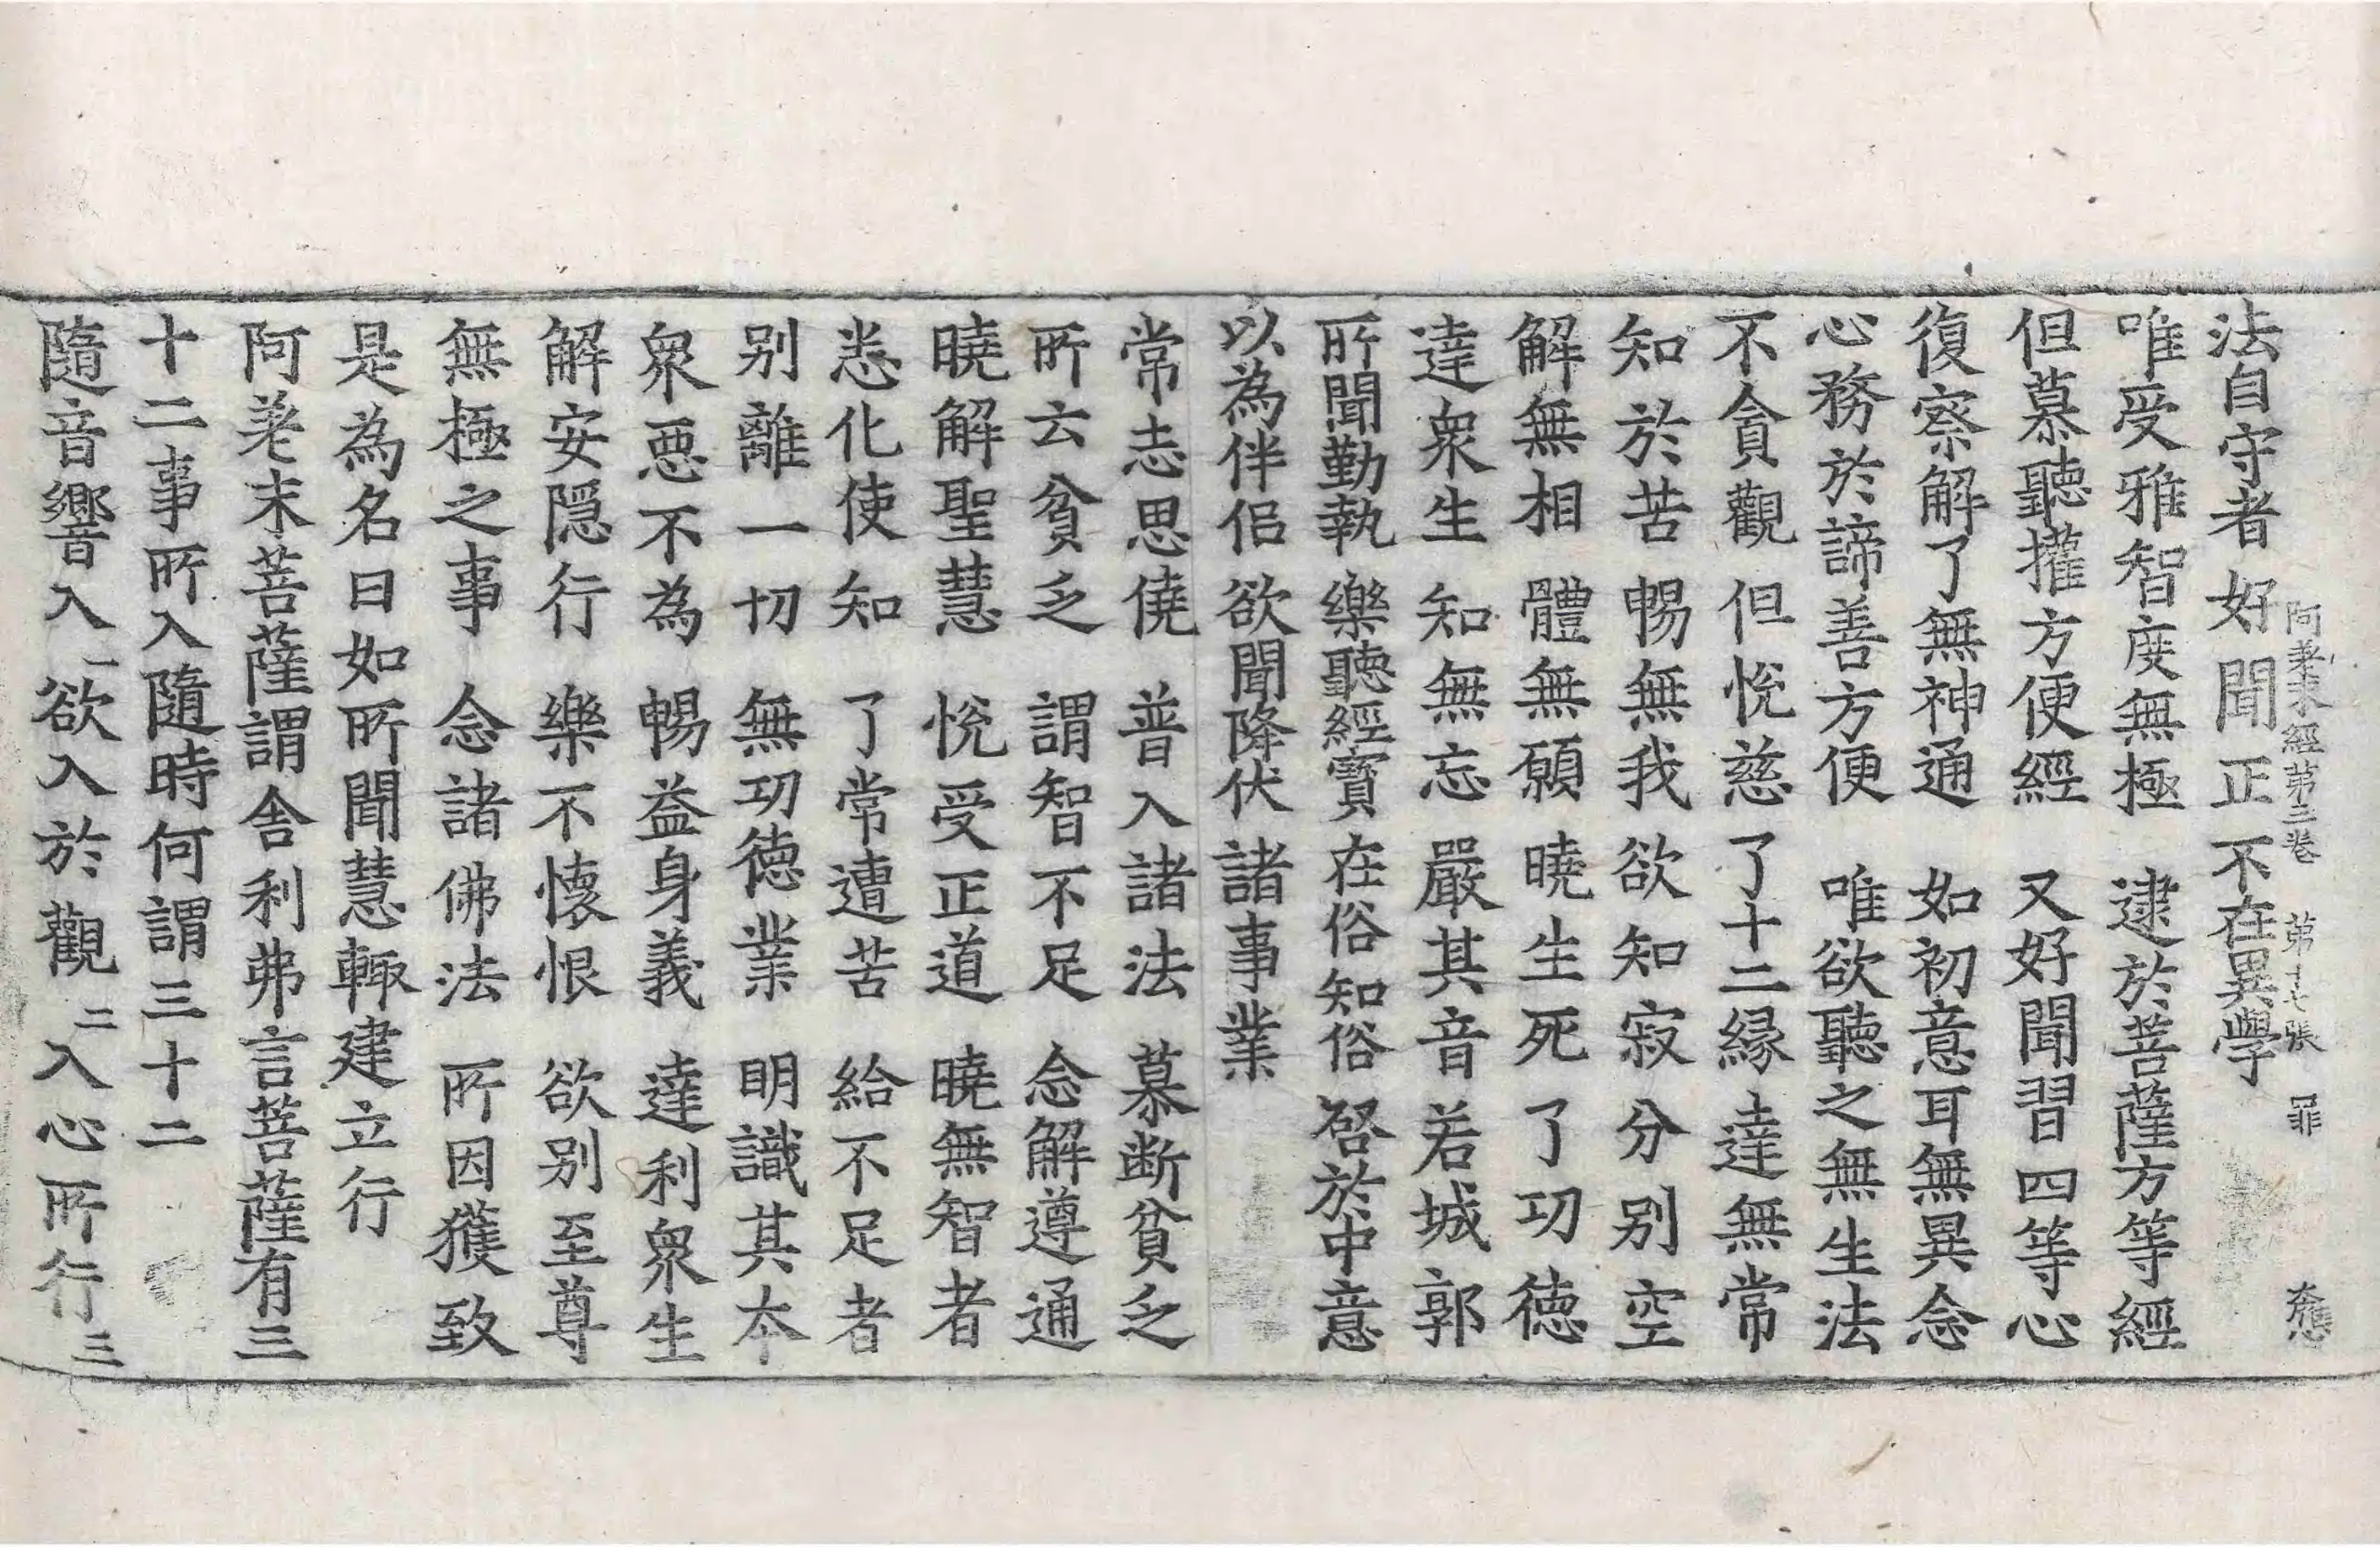 阿差末經第三卷 第十七張 罪
法自守者 好聞正 不在異學
唯受雅智度無極 逮於菩薩方等經
但慕聽攉方便經 又好聞習四等心
復察解了無神通 如初意耳無異念
心務於諦善方便 唯欲聽之無生法
不貪觀 但恱慈 了十二緣 達無常
知於苦 暢無我 欲知寂 分别空
解無相 體無願 曉生死 了功德
達衆生 知無忘 嚴其音 若城郭
所聞勤執 樂聽經寶 在俗知俗 啓於中意
以為伴侣 欲聞降伏 諸事業
常志思僥 普入諸法 慕断貧乏
所云貧乏 謂智不足 念解遵通
曉解聖慧 恱受正道 曉無智者
悉化使知 了常遭苦 給不足者
别離一切 無功德業 明識其本
衆惡不為 暢益身義 達利衆生
解安隱行 樂不懷恨 欲别至尊
無極之事 念諸佛法 所因獲致
是為名曰如所聞慧輙建立行
阿差末菩薩謂舍利弗言菩薩有三
十二事所入隨時何謂三十二
隨音響入一欲入於觀二入心所行三